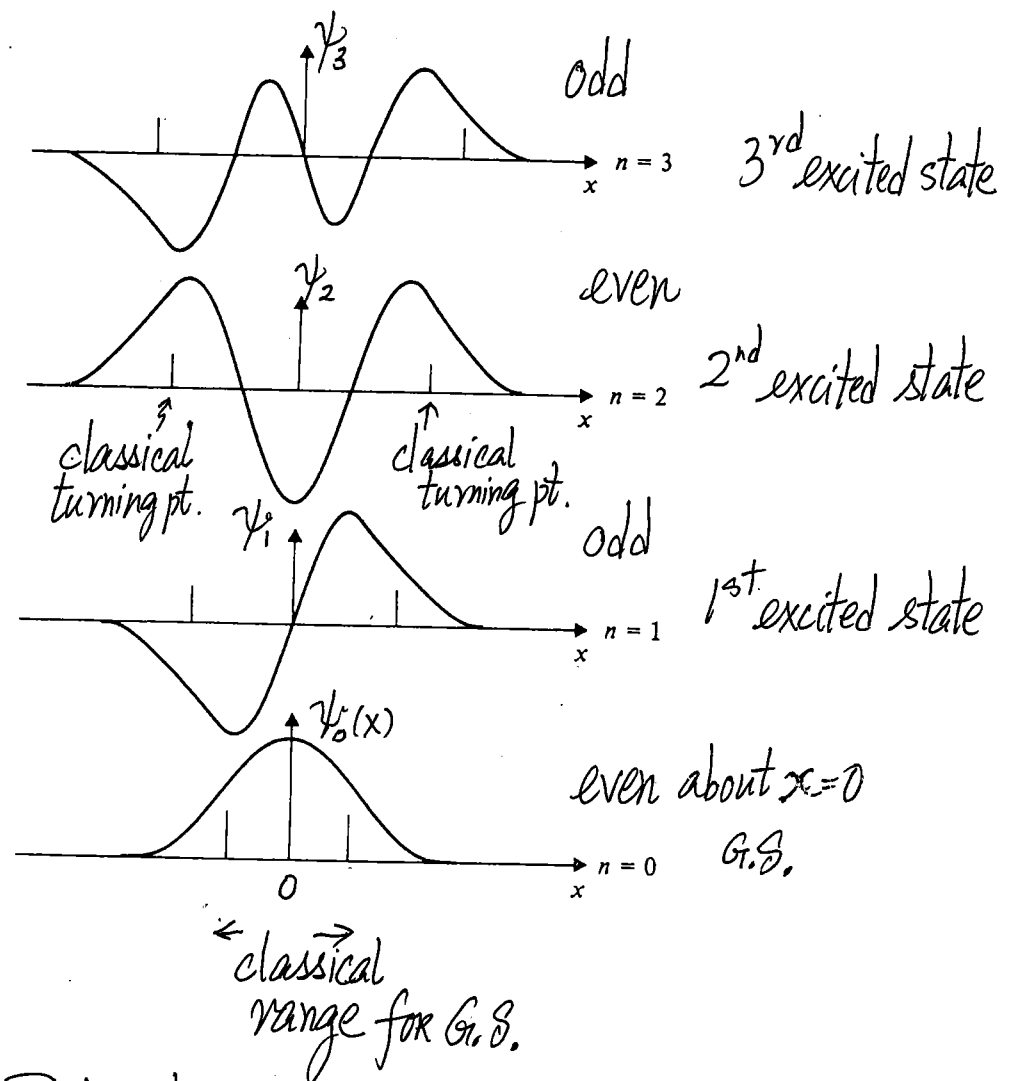 ψ₃
odd
n = 3
x
3rd excited state
ψ₂
even
n = 2
x
2nd excited state
classical
turning pt.
classical
turning pt.
ψ₁
odd
n = 1
x
1st excited state
ψ₀(x)
even about x=0
G.S.
n = 0
x
0
← →
classical
range for G.S.